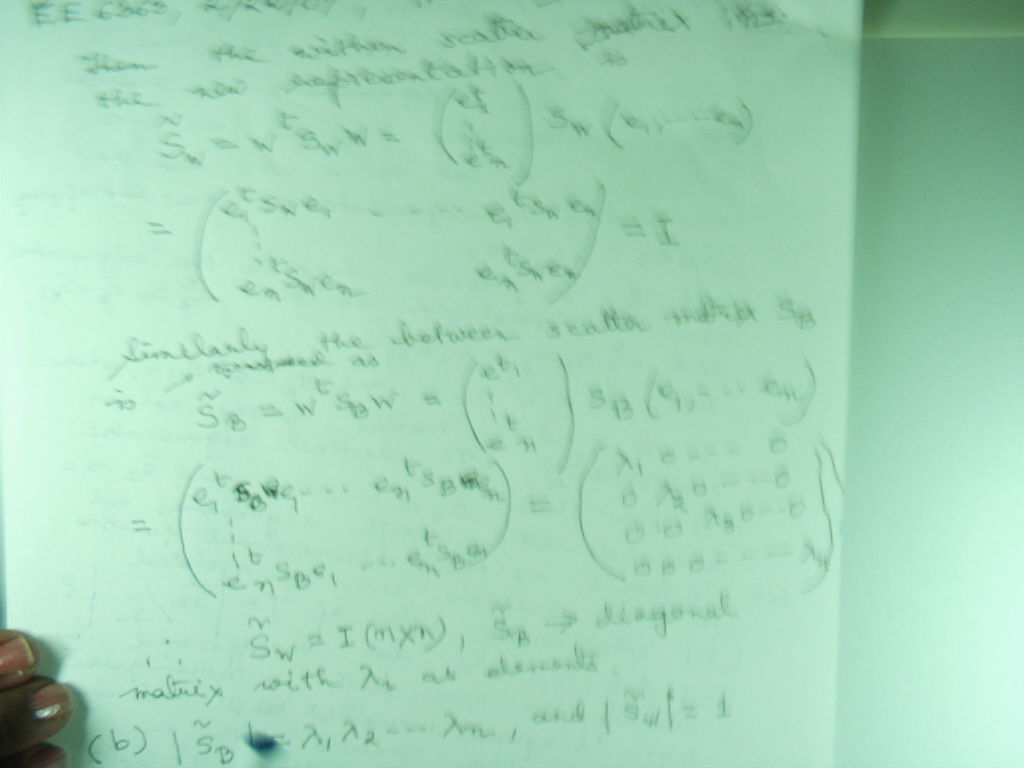 EE 6363,
then the within scatter matrix
the new representation is
S̃_W = W^t S_W W = ( e_1^t ⋮ e_n^t ) S_W ( e_1, ..... e_n )
= ( e_1^t S_W e_1 ..... e_1^t S_W e_n ⋮ e_n^t S_W e_1 e_n^t S_W e_n ) = I
Similarly the between scatter matrix S_B
is S̃_B = W^t S_B W = ( e_1^t ⋮ e_n^t ) S_B ( e_1, .... e_n )
= ( e_1^t S_B e_1 .... e_n^t S_B e_n ⋮ e_n^t S_B e_1 .... e_n^t S_B e_n ) = ( λ_1 0 .... 0 0 λ_2 0 .... 0 0 0 λ_3 0 .. 0 0 0 0 .... λ_n )
∴ S̃_W = I (n×n), S̃_B → diagonal
matrix with λ_i as elements.
(b) |S̃_B| = λ_1 λ_2 .... λ_n, and |S̃_W| = 1